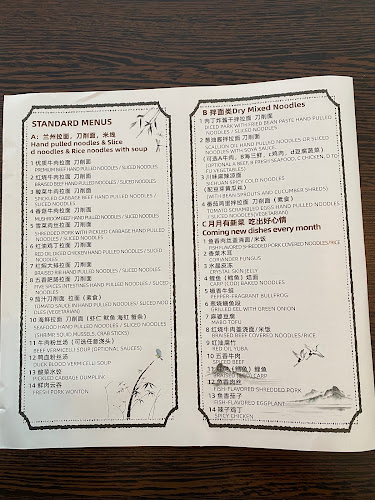 STANDARD MENUS
A：兰州拉面，刀削面，米线
Hand pulled noodles & Slice
d noodles & Rice noodles with soup
1 优质牛肉拉面 刀削面
PREMIUM BEEF HAND PULLED NOODLES / SLICED NOODLES
2 红烧牛肉拉面 刀削面
BRAISED BEEF HAND PULLED NOODLES / SLICED NOODLES
3 酸菜牛肉拉面 刀削面
CABBAGE BEEF HAND PULLED NOODLES /
SLICED NOODLES
4 香菇牛肉拉面 刀削面
MUSHROOM BEEF HAND PULLED NOODLES / SLICED NOODLES
5 雪菜肉丝拉面 刀削面
SHREDDED PORK WITH PICKLED CABBAGE HAND PULLED
NOODLES / SLICED NOODLES
6 红油鸡丁拉面 刀削面
RED OIL DICED CHICKEN HAND PULLED NOODLES / SLICED
NOODLES
7 红焖大排拉面 刀削面
BRAISED RIB HAND PULLED NOODLES / SLICED NOODLES
8 五香肥肠拉面 刀削面
FIVE SPICES INTESTINES HAND PULLED NOODLES / SLICED
NOODLES
9 茄汁刀削面 拉面（素食）
TOMATO SAUCE IN HAND PULLED NOODLES / SLICED NOOD
LES (VEGETARIAN)
10 海鲜拉面 刀削面（虾仁 鱿鱼 海虹 蟹条）
SEAFOOD HAND PULLED NOODLES / SLICED NOODLES
(SHRIMP, SQUID, MUSSELS, CRAB STICKS)
11 牛肉粉丝汤（可选任意浇头）
BEEF VERMICELLI SOUP (OPTIONAL SAUCES)
12 鸭血粉丝汤
DUCK BLOOD VERMICELLI SOUP
13 酸菜水饺
PICKLED CABBAGE DUMPLING
14 鲜肉云吞
FRESH PORK WONTON
B 拌面类Dry Mixed Noodles
1 肉丁炸酱干拌拉面 刀削面
DICED PARK WITH FRIED BEAN PASTE HAND PULLED
NOODLES / SLICED NOODLES
2 葱油酱拌拉面 刀削面
SCALLION OIL HAND PULLED NOODLES OR SLICED
NOODLES WITH SOYA SAUCE
(OPTIONAL A BEEF, B FRESH SEAFOOD, C CHICKEN, D TO
FU,VEGETABLES)
3 川味麻辣凉面
SICHUAN SPICY COLD NOODLES
（配豆芽黄瓜丝）
(WITH BEAN SPROUTS AND CUCUMBER SHREDS)
4 番茄鸡蛋拌面 刀削面（素食）
TOMATO SCRAMBLED EGGS HAND PULLED NOODLES
/ SLICED NOODLES(VEGETARIAN)
C 月月有新菜 吃出好心情
Coming new dishes every month
1 鱼香肉丝盖浇面/米饭
FISH FLAVORED SHREDDED PORK COVERED NOODLES/RICE
2 香菜木耳
CORIANDER FUNGUS
3 水晶皮冻
CRYSTAL SKIN JELLY
4 鲤鱼（鳕鱼）焙面
CARP (COD) BAKED NOODLES
5 椒香牛蛙
PEPPER-FRAGRANT BULLFROG
6 葱烧鳗鱼段
GRILLED EEL WITH GREEN ONION
7 麻婆豆腐
MAPO TOFU
8 红烧牛肉盖浇面/米饭
BRAISED BEEF COVERED NOODLES/RICE
9 红油腐竹
RED OIL YUBA
10 五香牛肉
SPICED BEEF
鲤鱼
CARP
12 鱼香肉丝
FISH-FLAVORED SHREDDED PORK
13 鱼香茄子
FISH-FLAVORED EGGPLANT
14 辣子鸡丁
SPICY CHICKEN